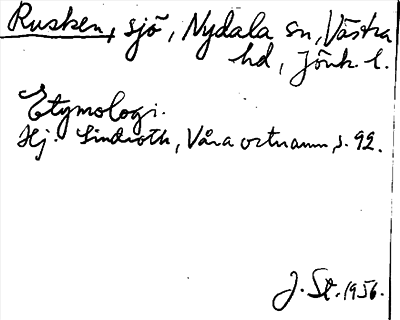 Rusken, sjö, Nydala sn, Västra
hd, Jönk. l.
Etymologi.
Hj. Lindroth, Våra ortnamn, s. 92.
J. St. 1956.